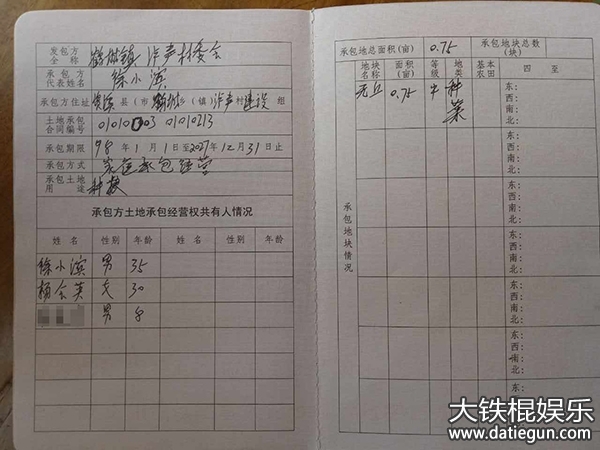 发包方全称 鹤城镇浐声村委会
承包方代表姓名 徐小滨
承包方住址 县(市 (镇) 浐声村建设 组
土地承包合同编号 01010003 01010213
承包期限 98年1月1日至2027年12月31日止
承包方式 家庭承包经营
承包土地用途 种植
承包方土地承包经营权共有人情况
姓名 性别 年龄 姓名 性别 年龄
徐小滨 男 35
杨会英 女 30
男 8
承包地总面积(亩) 0.75 承包地块总数(块)
地块名称 面积(亩) 等级 地类 基本农田 四至
0.75 种菜
承包地块情况
东:
西:
南:
北:
东:
西:
南:
北:
东:
西:
南:
北:
东:
西:
南:
北:
东:
西:
南:
北:
东:
西:
南:
北:
东:
西:
南:
北:
东:
西:
大铁棍娱乐
www.datiegun.com